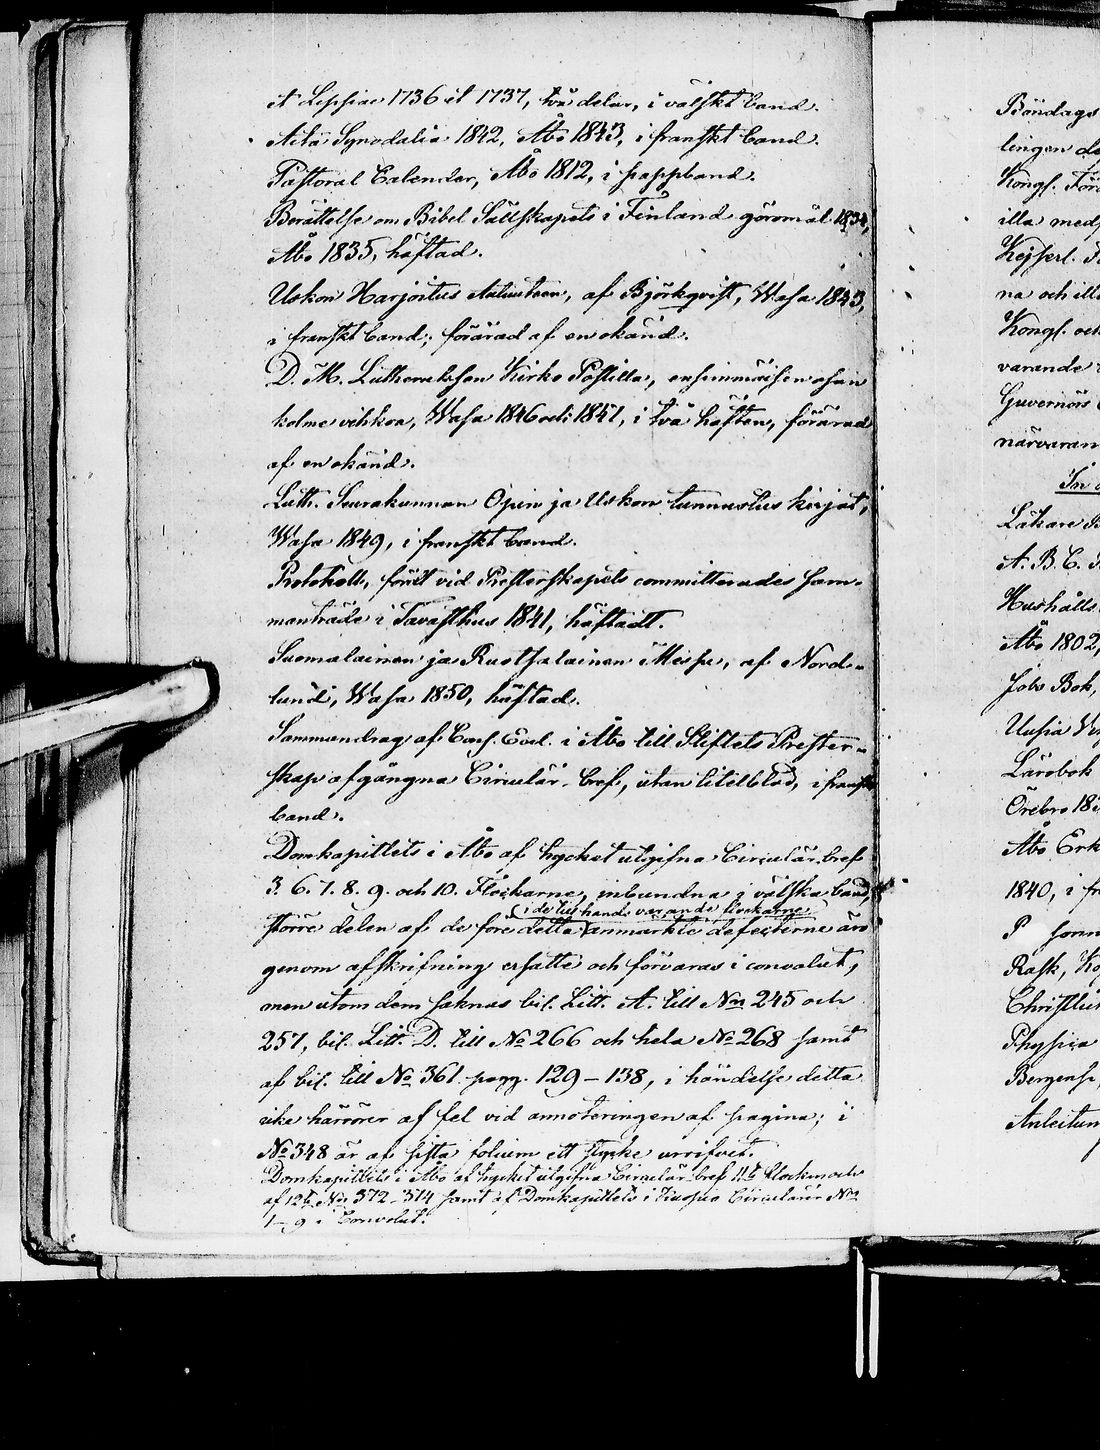 et Lipsiae 1736 et 1737, två delar, i välskt band.
Acta Synodalia 1842, Åbo 1843, i franskt band.
Pastoral Calender, Åbo 1812, i pappband.
Berättelse om Bibel Sällskapets i Finland göromål 1834,
Åbo 1835, häftad.
Uskon Harjoitus Autuuteen, af Björkqvist, Wasa 1843,
i franskt band; förärad af en okänd.
D. M. Lutheruksen Kirko Postilla, ensimmäisen osan
kolme vihkoa, Wasa 1846 och 1847, i två häften, förärad
af en okänd.
Luth. Seurakunnan Opin ja Uskon tunnustus kirjat,
Wasa 1849, i franskt band.
Protokoll, fördt vid Presterskapets committerades sam-
manträde i Tavasthus 1841, häftadt.
Suomalainen ja Ruotsalainen Messu, af Nord-
lund, Wasa 1850, häftad.
Sammandrag af Cons. Eccl. i Åbo till Stiftets Prester-
skap afgångna Circulär-bref, utan titelblad, i franskt
band.
Domkapitlets i Åbo af trycket utgifna Circulär bref
3. 6. 7. 8. 9. och 10. Flockarne, inbundna i välska band,
i de till hands varande flockarne
större delen af de före detta anmärkte defecterne äro
genom afskrifning ersatte och förvaras i convolut,
men utom dem saknas bil. Litt. A. till Nris 245 och
257, bil. Litt. D. till No 266 och hela No 268 samt
af bil. till No 361 pagg. 129-138, i händelse detta
icke härrörer af fel vid annoteringen af pagina; i
No 348 är af sista folium ett stycke urrifvet.
Domkapitlets i Åbo af trycket utgifna Circulär bref 11te flocken och
af 12te Nris 372-374 samt af Domkapitlets i Kuopio Circulärer Nris
1-9 i Convolut.
Böndags
lingen
Kongl. För
illa med
Kejserl.
na och ill
Kongl. och
varande
Guvernörs
närvaran
In
Läkare B
A. B. C.
Hushålls
Åbo 1802,
Jobs Bok,
Uusia
Lärobok
Örebro 18
Åbo Erk
1840, i fr
P
Rask, Kö
Christlie
Physica
Bergens
Anleitun